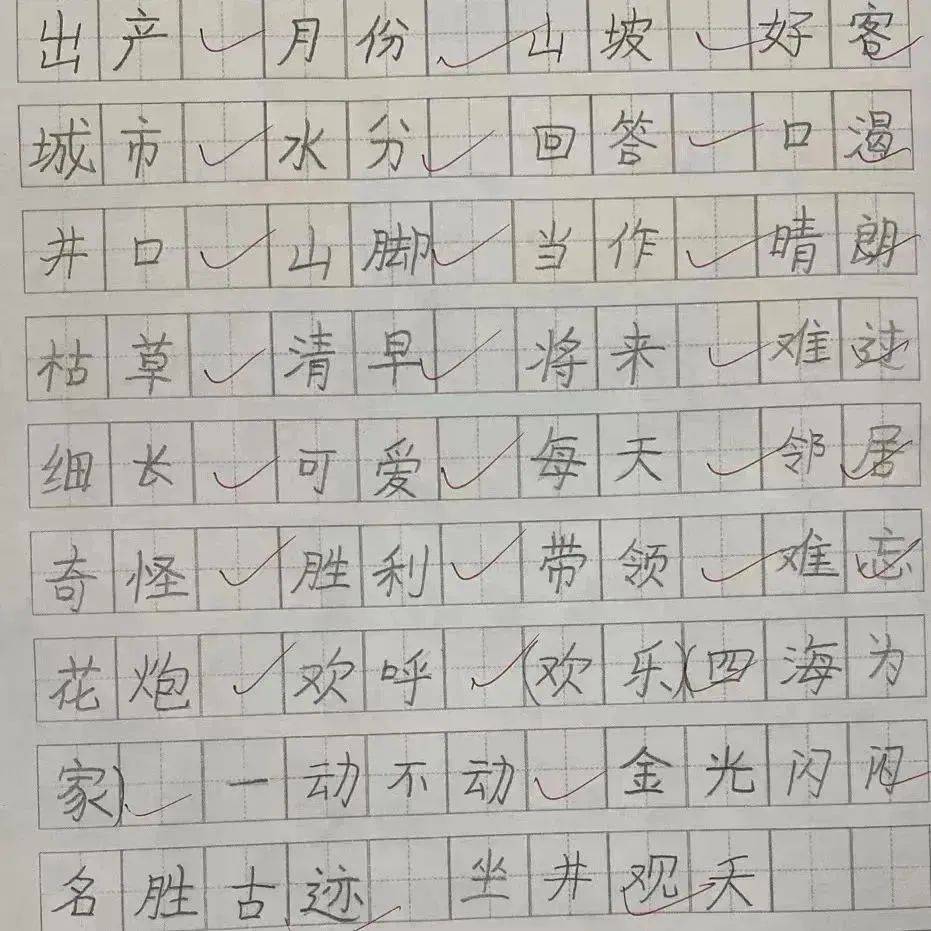 出产 月份 山坡 好客
城市 水分 回答 口渴
井口 山脚 当作 晴朗
枯草 清早 将来 难过
细长 可爱 每天 邻居
奇怪 胜利 带领 难忘
花炮 欢呼 (欢乐)(四海为
家) 一动不动 金光闪闪
名胜古迹 坐井观天